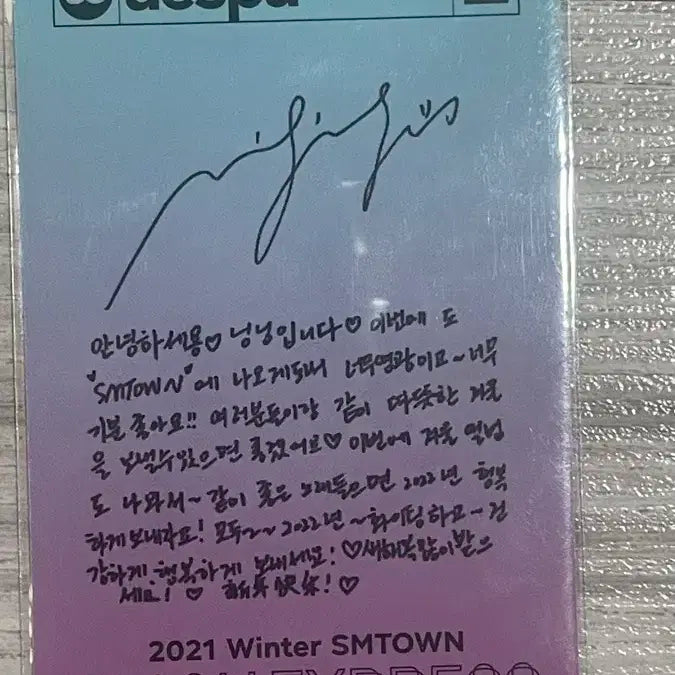 aespa
안녕하세용♡ 닝닝입니다♡ 이번에 또
"SMTOWN"에 나오게돼서 너무영광이고~너무
기분 좋아요!! 여러분들이랑 같이 따뜻한 겨울
을 보낼수있으면 좋겠어요♡ 이번에 겨울 앨범
도 나와서~ 같이 좋은 노래들으면 2022년 행복
하게보내자요! 모두~~ 2022년 ~화이팅하고~ 건
강하게, 행복하게 보내세요! ♡새해복많이받으
세요! ♡ 新年快乐! ♡
2021 Winter SMTOWN
EXPRESS